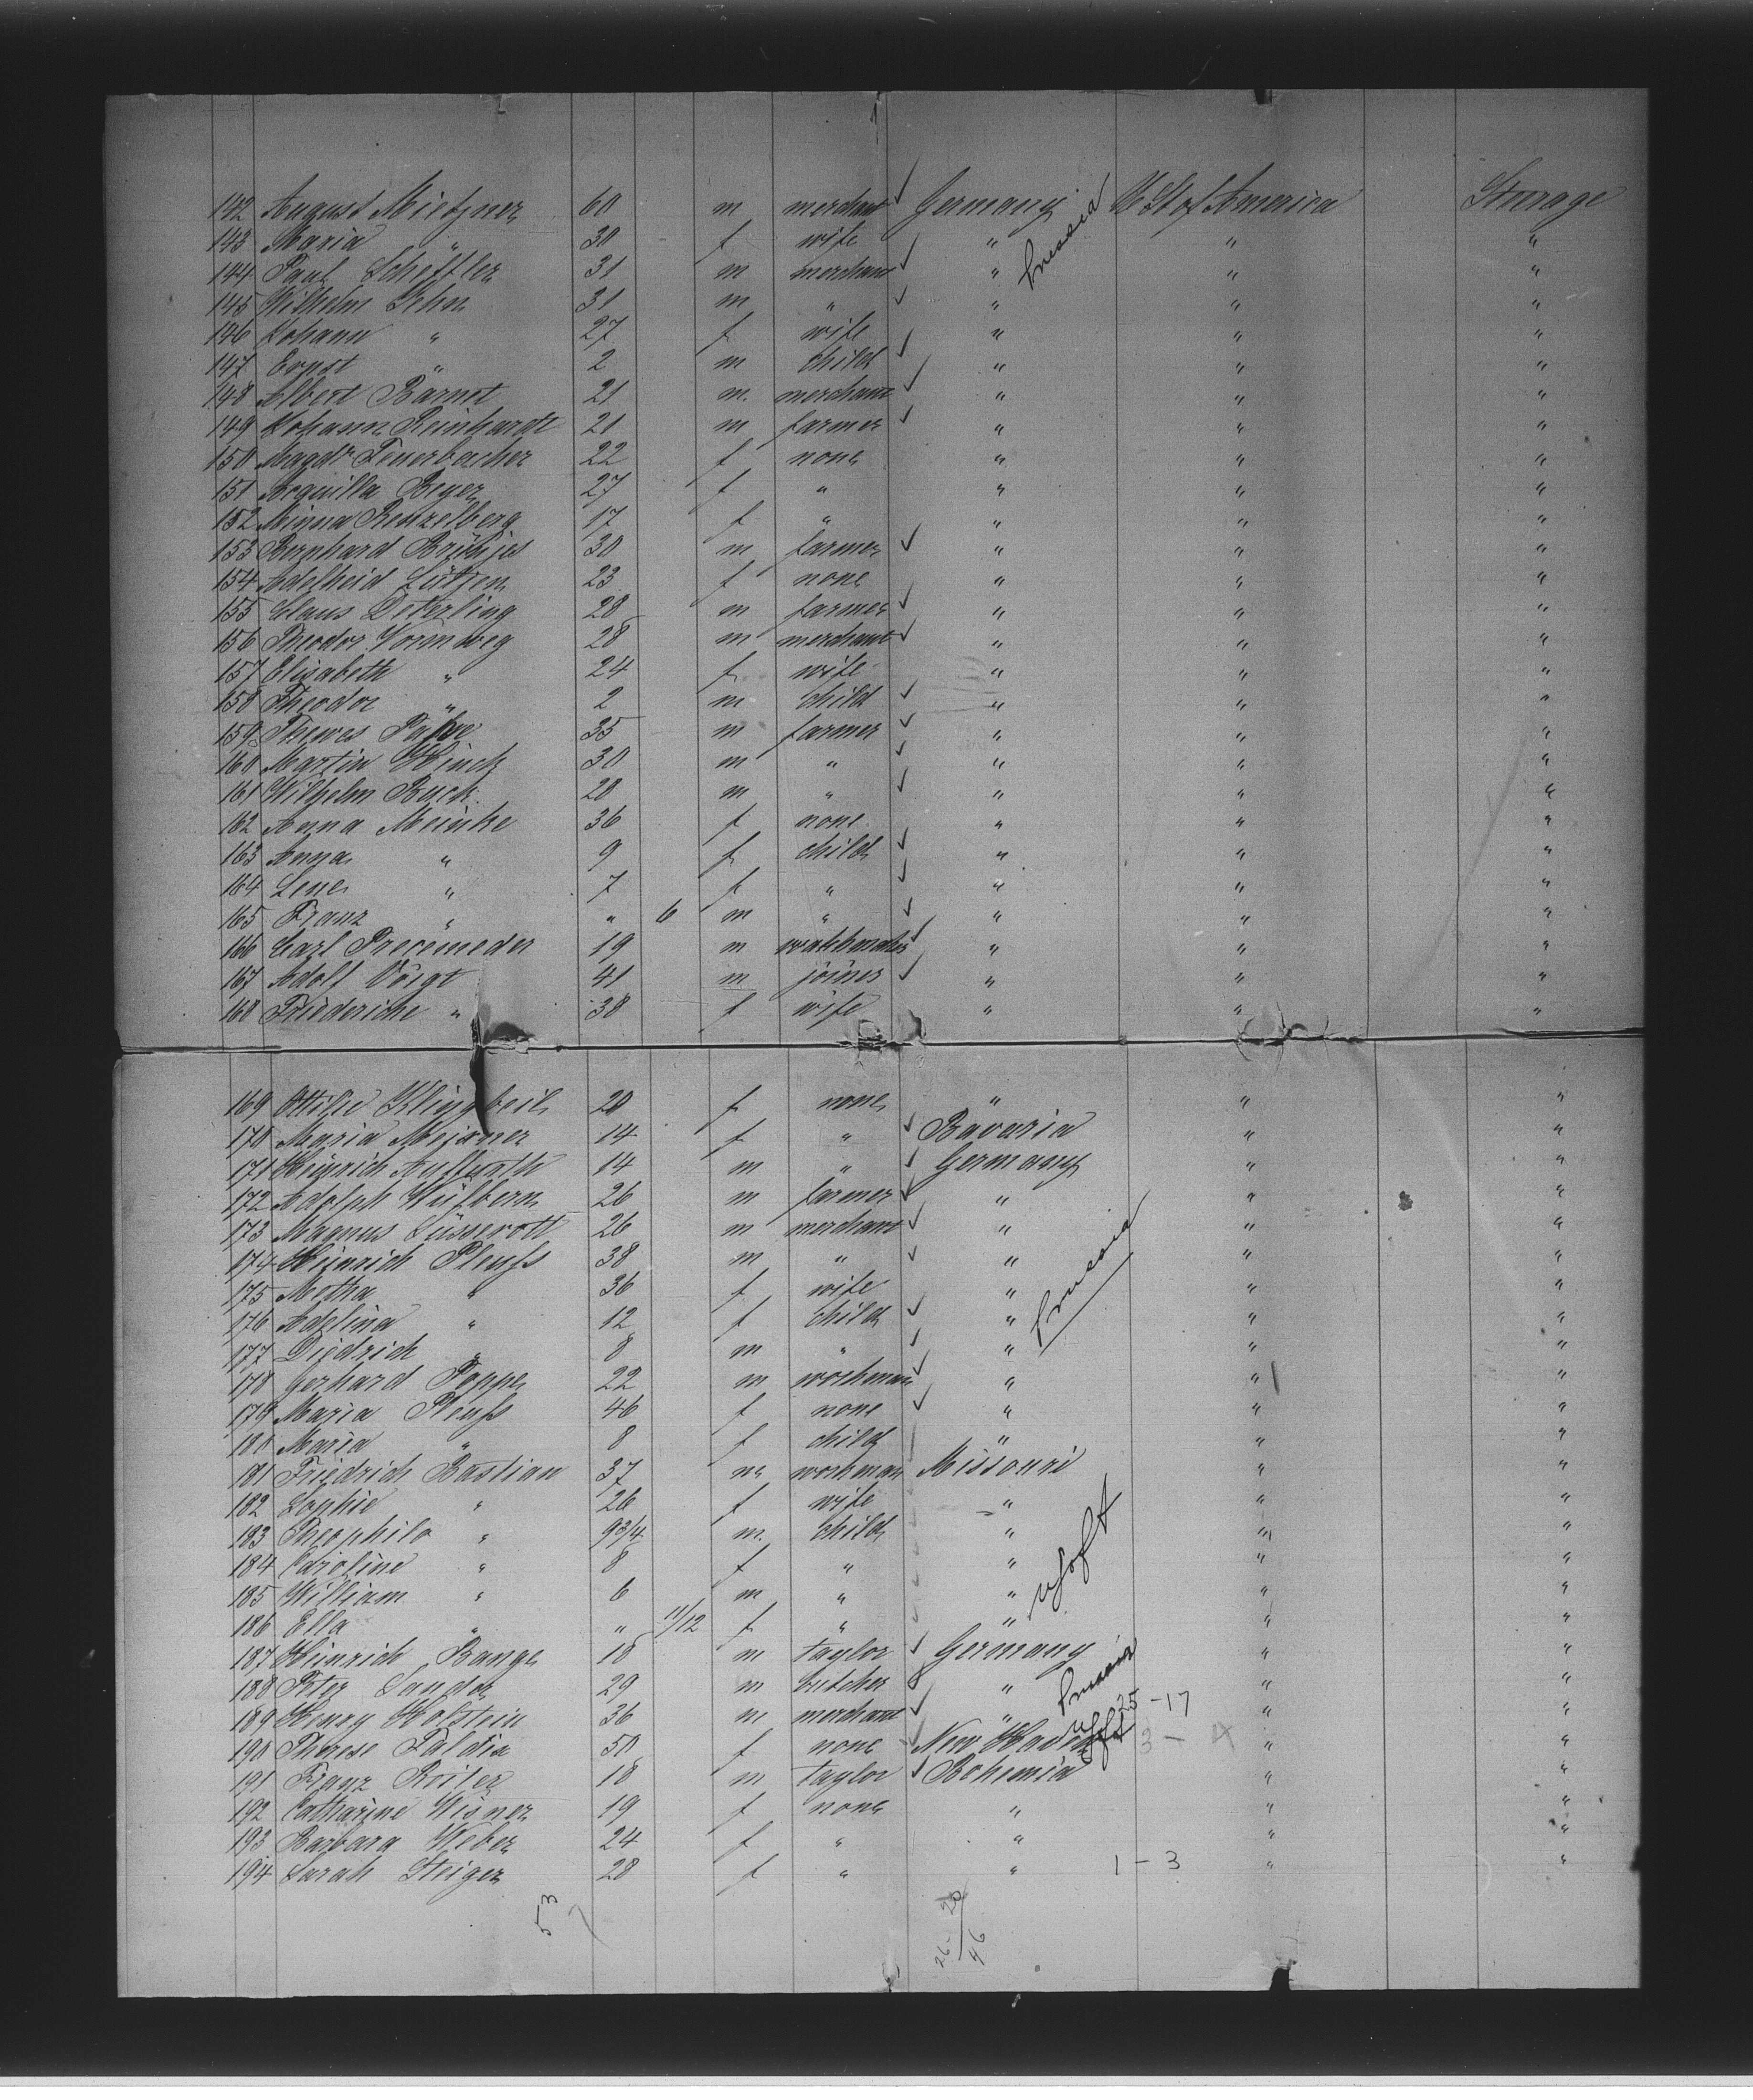 142 August Mietzner 60 m merchant Germany U St of America Steerage
143 Maria " 30 f wife " " "
144 Paul Scheffler 31 m merchant " " "
145 Wilhelm 31 m " " " "
146 Johann " 27 f wife " " "
147 Ernst " 2 m child " " "
148 Albert Barnst 21 m. merchant " " "
149 Johann Reinhardt 21 m farmer " " "
150 Magd. Feuerbacher 22 f none " " "
151 Beyer 27 f " " " "
152 Minna Renzelberg 17 f " " " "
153 Bernhard Brüntjes 30 m farmer " " "
154 Adelheid Lütjen 23 f none " " "
155 Claus Deterling 28 m farmer " " "
156 Theodor Vormweg 28 m merchant " " "
157 Elisabeth " 24 f wife " " "
158 Theodor " 2 m child " " "
159 Thewes 35 m farmer " " "
160 Martin Hinck 30 m " " " "
161 Wilhelm Buck 20 m " " " "
162 Anna Meinke 36 f none " " "
163 Anna " 9 f child " " "
164 Lene " 7 f " " " "
165 Franz " " 6 m " " " "
166 Carl 19 m watchmaker " " "
167 Adolf Voigt 41 m joiner " " "
168 Friederike " 38 f wife " " "
Prussia
169 Ottilie Klingbeil 20 f none " " "
170 Maria Meixner 14 f " Bavaria " "
171 Heinrich 14 m " Germany " "
172 Adolph Hülbern 26 m farmer " " "
173 Magnus Süsserott 26 m merchant " " "
174 Heinrich Pleuss 38 m " " " "
175 Metha " 36 f wife " " "
176 Adelina " 12 f child " " "
177 Diedrich " 8 m " " " "
178 Gerhard Poppe 22 m workman " " "
179 Maria Pleuss 46 f none " " "
180 Maria " 8 f child " " "
Prussia
181 Friedrich Bastian 37 m workman Missouri " "
182 Sophie " 26 f wife " " "
183 Theophilo " 9 3/4 m. child " " "
184 Caroline " 8 f " " " "
185 William " 6 m " " " "
186 Ella " " 11/12 f " " " "
U S of A
187 Heinrich Bange 18 m taylor Germany " "
188 Peter Sander 29 m butcher " " "
189 Henry Holstein 36 m merchant " " "
Prussia 25-17
190 Therese Faldix 50 f none New Haven U S of A 3-4 " "
191 Franz Boiler 18 m taylor Bohemia " "
192 Catharine Wisner 19 f none " " "
193 Barbara Weber 24 f " " " "
194 Sarah Steiger 28 f " " 1-3 " "
53
26-20
46